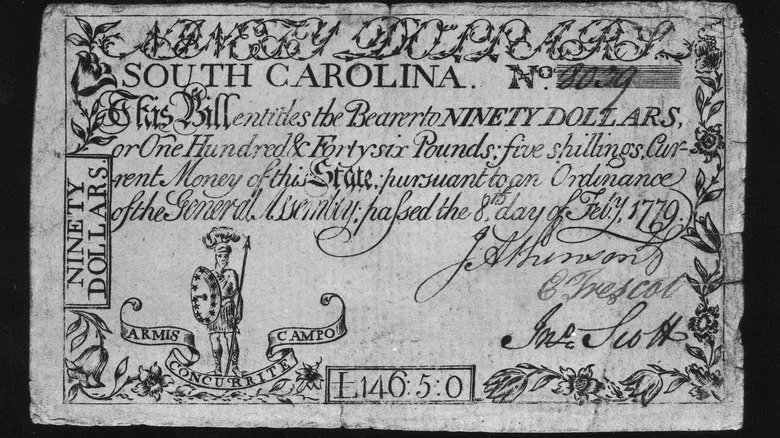 NINETY DOLLARS
SOUTH CAROLINA. No. 3039
This Bill entitles the Bearer to NINETY DOLLARS,
or One Hundred & Forty six Pounds; five shillings, Cur-
rent Money of this State; pursuant to an Ordinance
of the General Assembly; passed the 8th day of Feby. 1779.
NINETY
DOLLARS
J Atkinson
C Trescot
Jno. Scott
ARMIS
CONCURRITE
CAMPO
£146:5:0